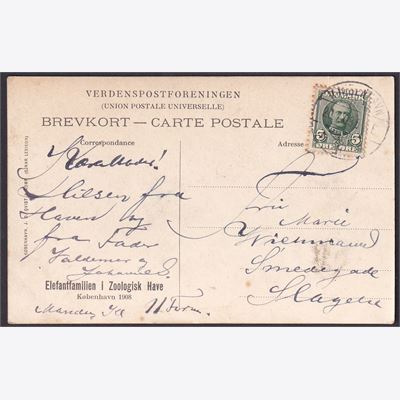 VERDENSPOSTFORENINGEN
(UNION POSTALE UNIVERSELLE)
BREVKORT — CARTE POSTALE
Correspondance
Adresse
5 5
Kære Moder!
Hilsen fra
Haven og
fra Fader
Valdemar og
Johannes.
Elefantfamilien i Zoologisk Have
København 1908
Mandag Kl 11 Form.
Fru
Marie
Smedegade
Slagelse